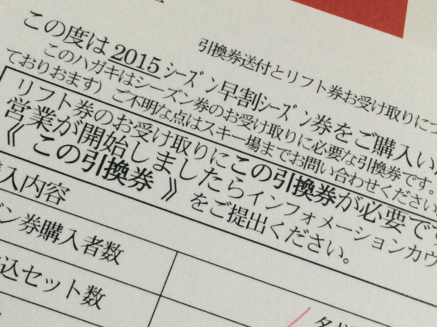 引換券送付とリフト券お受け取りにつ
この度は2015シーズン早割シーズン券をご購入い
このハガキはシーズン券のお受け取りに必要な引換券です。
ておりおます）ご不明な点はスキー場までお問い合わせください
リフト券のお受け取りにこの引換券が必要です
営業が開始しましたらインフォメーションカウ
《 この引換券 》をご提出ください。
入内容
ズン券購入者数
込セット数